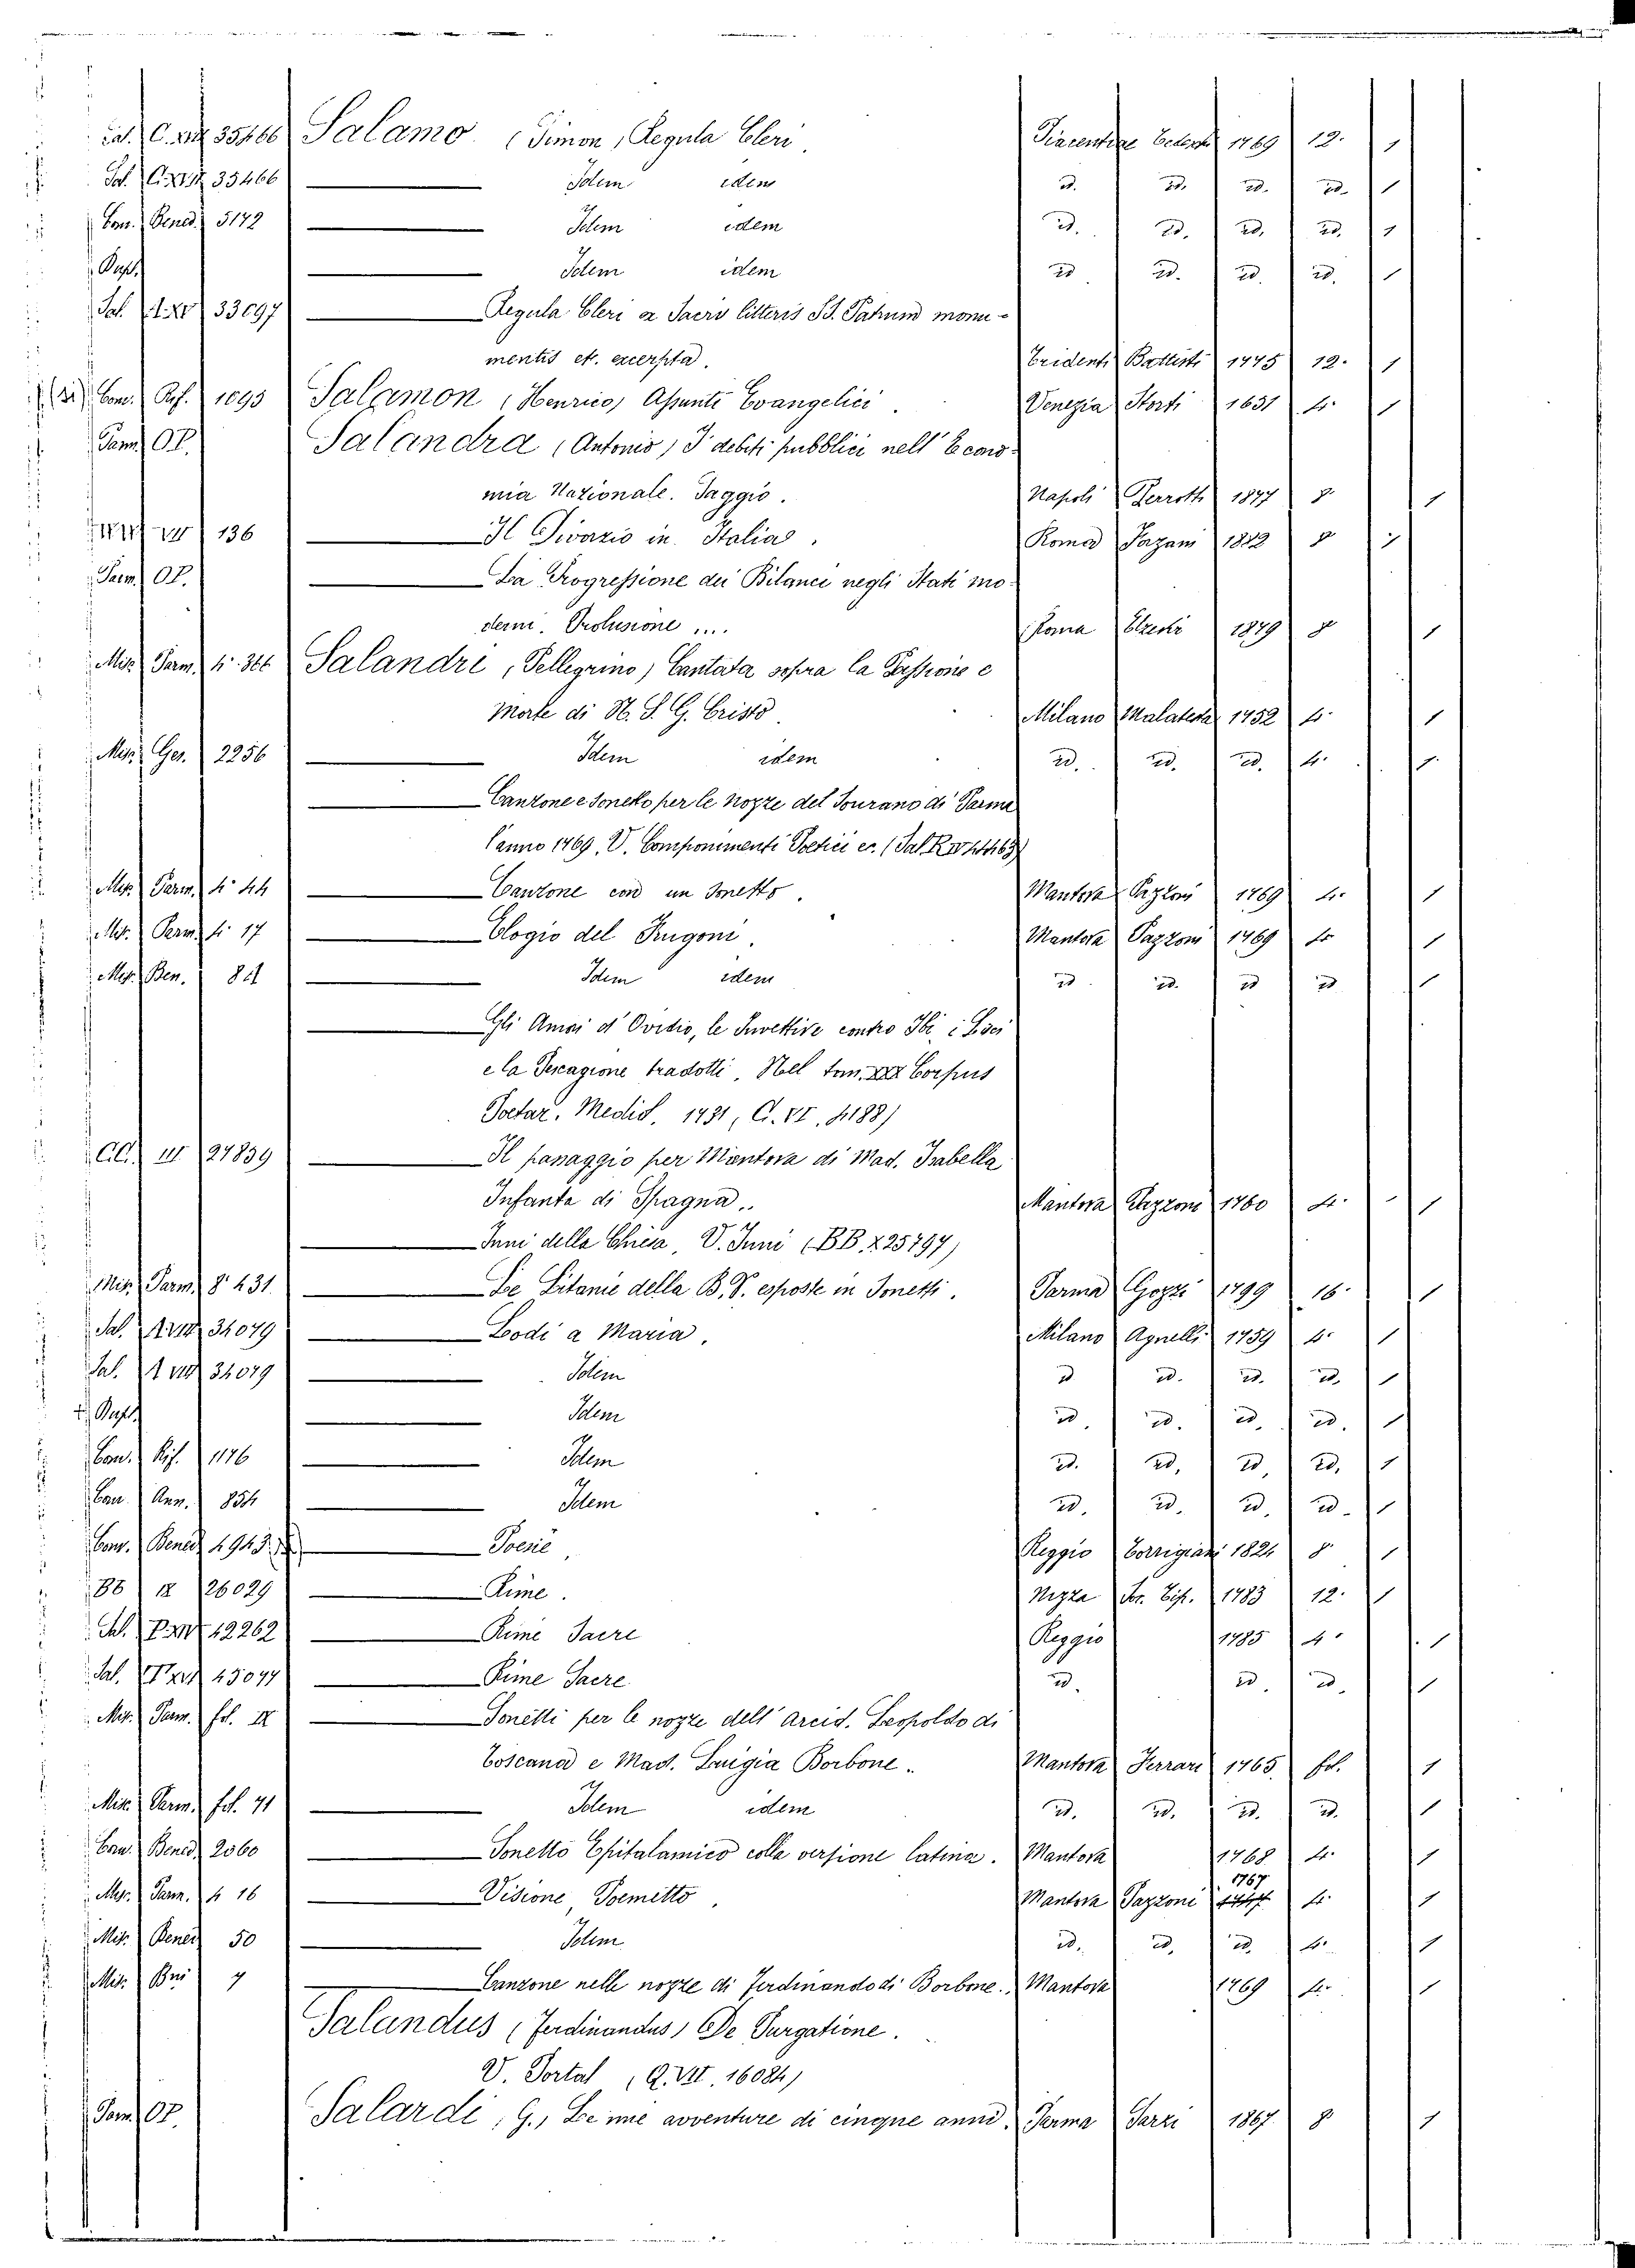 Sal. C. XVII 35466 Salamo (Simon) Regula Cleri. Placentiae 1769 12. 1
Sal. C. XVII 35466 Idem idem id. id. id. id. 1
Con. Bened. 5172 Idem idem id. id. id. id. 1
Dupl. Idem idem id. id. id. id. 1
Sal. 33097 Regula Cleri ex Sacris litteris SS. Patrum monu-
mentis et. excerpta. Tridenti Battisti 1775 12. 1
Conv. Rif. 1095 Salamon (Henrico) Assunti Evangelici. Venezia Storti 1631 4. 1
Parm. OP. Salandra (Antonio) I debiti pubblici nell' Econo-
mia Nazionale. Saggio. Napoli Perrotti 1877 8. 1
136 Il Divorzio in Italia. Roma 1882 8 1
Parm. OP. La Progressione dei Bilanci negli Stati mo-
derni. Prolusione .... Roma 1879 8 1
Mis. Parm. 4. 366 Salandri (Pellegrino) Cantata sopra la Passione e
Morte di N. S. G. Cristo. Milano Malatesta 1752 4. 1
Mis. Ger. 2256 Idem idem id. id. id. 4. 1.
Canzone e Sonetto per le nozze del Sovrano di Parma
l'anno 1769. V. Componimenti Poetici ec.
Mis. Parm. 4. 44 Canzone con un Sonetto. Mantova Pazzoni 1769 4. 1
Mis. Parm. 4. 17 Elogio del Frugoni. Mantova Pazzoni 1769 4. 1
Mis. Ben. Idem idem id. id. id id 1
Gli Amori d' Ovidio, le Invettive contro Ibi, i Lisci
e la Pescagione tradotti. Nel tom. XXX Corpus
Poetar. Mediol. 1731, C. VI. 4188)
CC. III 27839 Il passaggio per Mantova di Mad. Isabella
Infanta di Spagna. Mantova Pazzoni 1760 4. 1
Inni della Chiesa. V. Inni (BB. X 25797)
Mis. Parm. 8. 431 Le Litanie della B. V. esposte in Sonetti. Parma Gozzi 1799 16. 1
Sal. 34079 Lodi a Maria. Milano Agnelli 1759 4. 1
Sal. 34079 Idem id id. id. id. 1
Dupl. Idem id. id. id. id. 1
Con. Rif. 1176 Idem id. id. id. id. 1
Con. Ann. 854 Idem id. id. id. id. 1
Conv. Bened. 4943. Poesie. Reggio Torrigiani 1824 8 1
BB IX 26029 Rime. Nizza Soc. Tip. 1783 12. 1
Sal. 42262 Rime Sacre Reggio 1785 4. 1
Sal. 45077 Rime Sacre id. id. id. 1
Mis. Parm. fol. IX Sonetti per le nozze dell' Arcid. Leopoldo di
Toscana e Mad. Luigia Borbone. Mantova Ferrari 1765 fol. 1
Mis. Parm. fol. 71 Idem idem id. id. id. id. 1
Con. Bened. 2060 Sonetto Epitalamico colla versione latina. Mantova 1768 4. 1
Mis. Parm. 4 16 Visione, Poemetto. Mantova Pazzoni 1767 4. 1
Mis. Bened. 50 Idem id. id. id. 4. 1
Mis. 7 Canzone nelle nozze di Ferdinando di Borbone. Mantova 1769 4. 1
Salandus (Ferdinandus) De Purgatione.
V. Portal (Q. VII. 16084)
Parm. OP. Salardi (G.) Le mie avventure di cinque anni. Parma Sarzi 1867 8 1